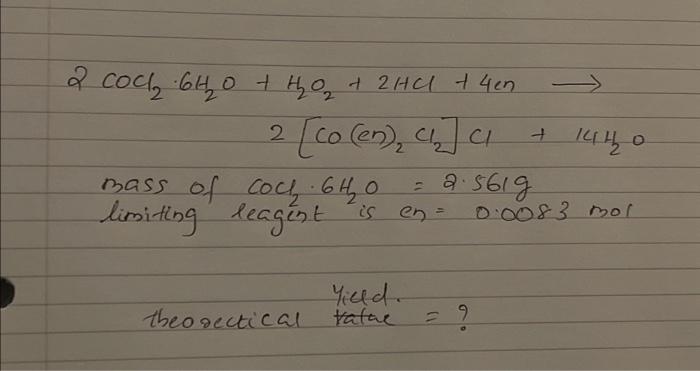 2 COCl₂·6H₂O + H₂O₂ + 2HCl + 4en ⟶
2 [CO(en)₂ Cl₂] Cl + 14H₂O
mass of COCl₂·6H₂O = 2.561g
limiting reagent is en = 0.0083 mol
Yield.
theorectical = ?